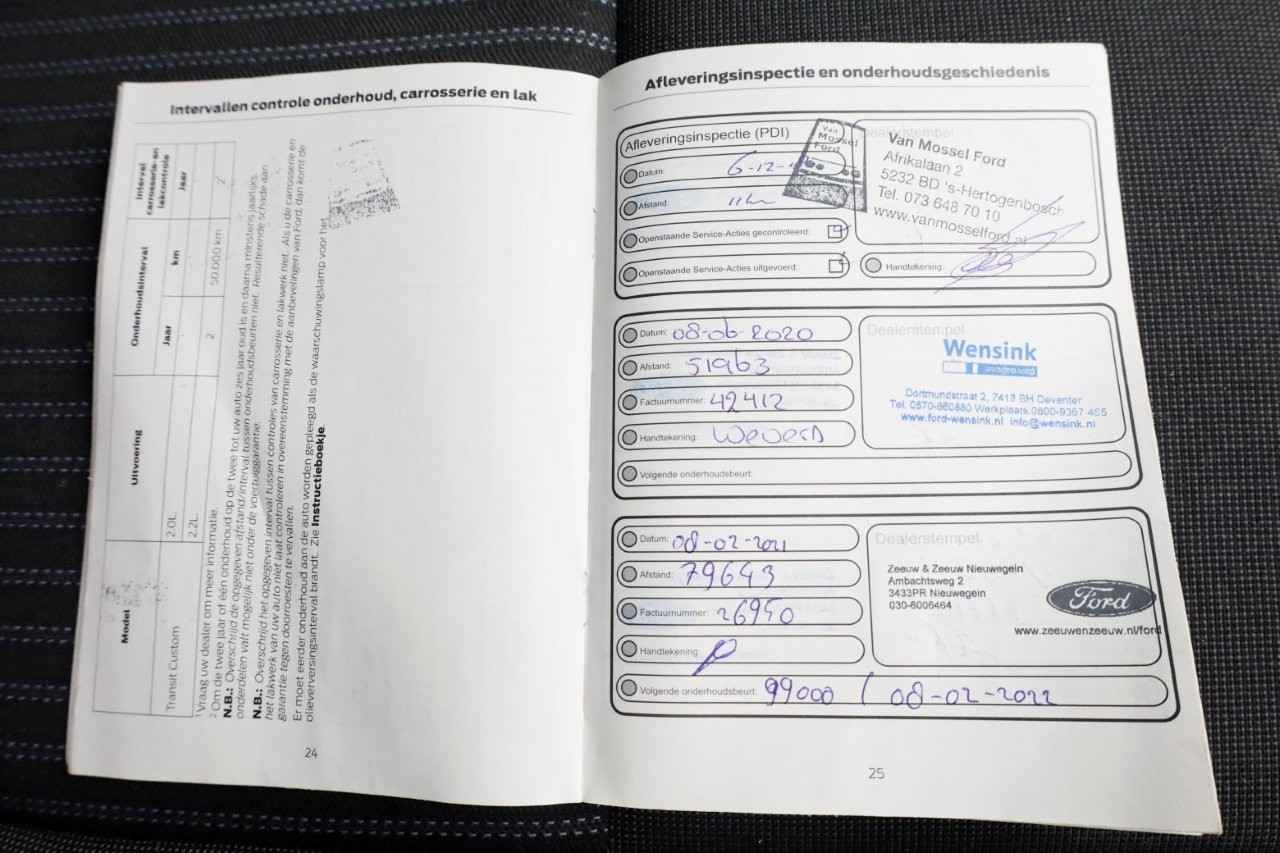 Intervallen controle onderhoud, carrosserie en lak
Model
Uitvoering
Onderhoudsinterval
Interval carrosserie- en lakcontrole
Jaar
km
Jaar
Transit Custom
2.0L
2.2L
2
50.000 km
2
1 Vraag uw dealer om meer informatie.
2 Om de twee jaar of één onderhoud op de twee tot uw auto zes jaar oud is en daarna minstens jaarlijks.
N.B.: Overschrijd de opgegeven afstand/interval tussen onderhoudsbeurten niet. Resulterende schade aan
onderdelen valt mogelijk niet onder de voertuiggarantie.
N.B.: Overschrijd het opgegeven interval tussen controles van carrosserie en lakwerk niet. Als u de carrosserie en
het lakwerk van uw auto niet laat controleren in overeenstemming met de aanbevelingen van Ford, dan komt de
garantie tegen doorroesten te vervallen.
Er moet eerder onderhoud aan de auto worden gepleegd als de waarschuwingslamp voor het
olieverversingsinterval brandt. Zie Instructieboekje.
24
Afleveringsinspectie en onderhoudsgeschiedenis
Afleveringsinspectie (PDI)
Datum: 6-12-
Afstand:
Openstaande Service-Acties gecontroleerd:
Openstaande Service-Acties uitgevoerd:
Van
Mossel
Ford
Dealerstempel
Van Mossel Ford
Afrikalaan 2
5232 BD 's-Hertogenbosch
Tel. 073 648 70 10
www.vanmosselford.nl
Handtekening:
Datum: 08-06-2020
Afstand: 51963
Factuurnummer: 42412
Handtekening:
Volgende onderhoudsbeurt:
Dealerstempel
Wensink
Dortmundstraat 2, 7418 BH Deventer
Tel. 0570-860880 Werkplaats 0800-9367 465
www.ford-wensink.nl info@wensink.nl
Datum: 08-02-2021
Afstand: 79643
Factuurnummer: 26950
Handtekening:
Volgende onderhoudsbeurt: 99000 / 08-02-2022
Dealerstempel
Zeeuw & Zeeuw Nieuwegein
Ambachtsweg 2
3433PR Nieuwegein
030-6006464
Ford
www.zeeuwenzeeuw.nl/ford
25